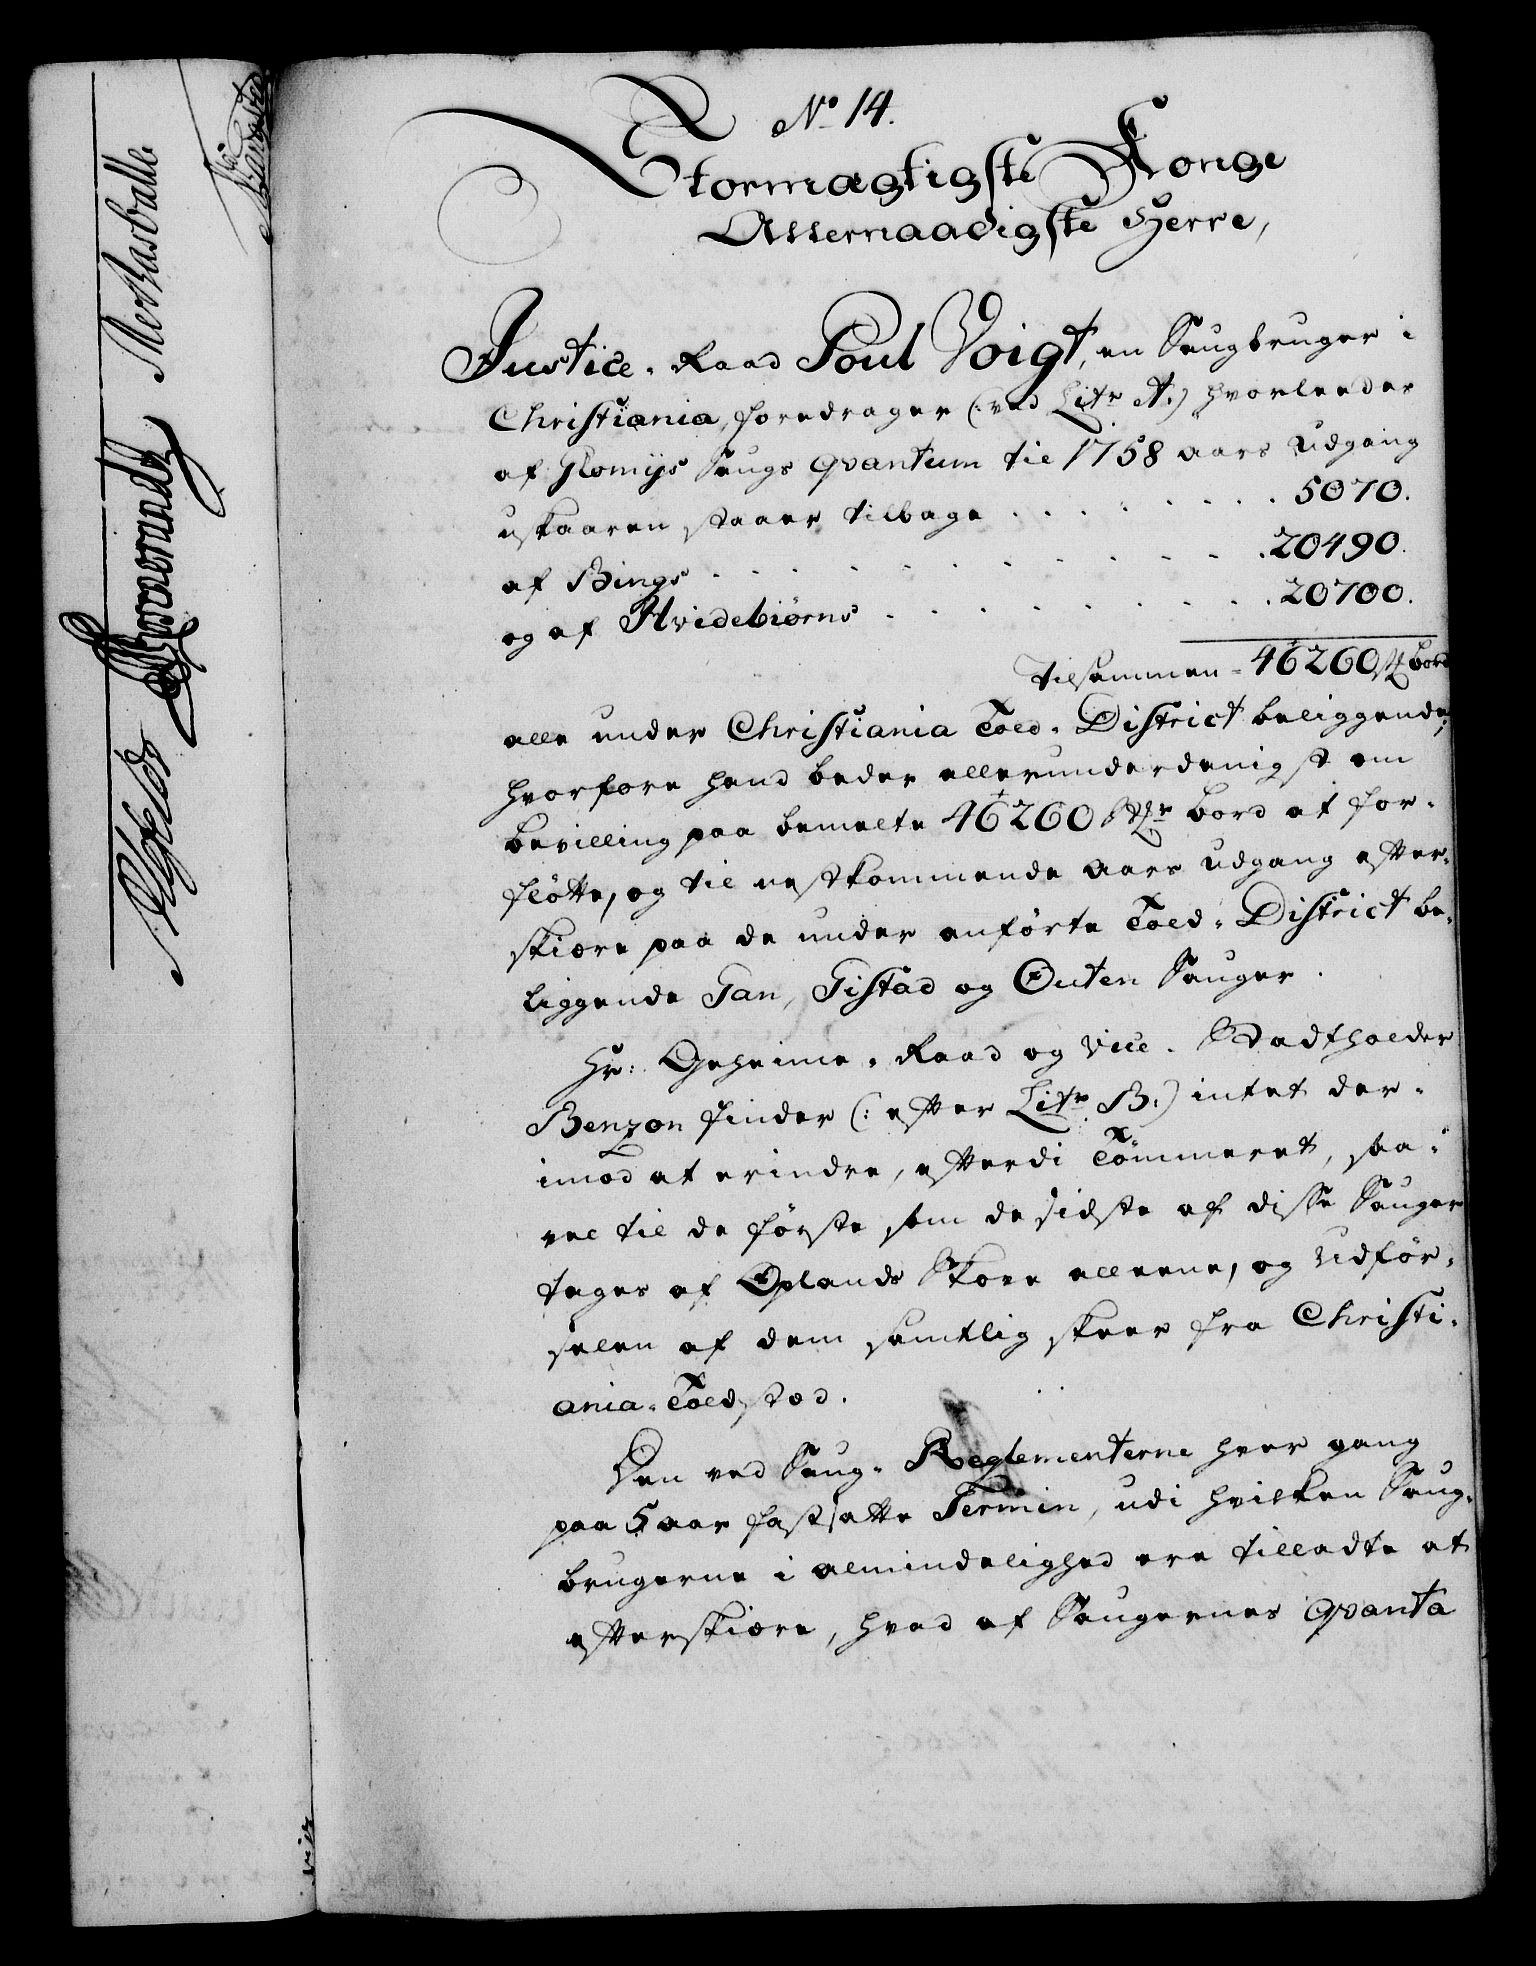 No 14.
Stormægtigste Konge
Allernaadigste Herre,
Justice-Raad Poul Voigt, en Saugbruger i
Christiania, foredrager (:ved Litr A:) hvorleedes
af Glomijs Saugs qvantum til 1758 aars Udgang
uskaaren staaer tilbage . . . . . . . . 5070.
af Bings . . . . . . . . . . 20490.
og af Hvidebiørns . . . . . . . . 20700.
tilsammen - 46260 st bord
alle under Christiania Told-District beliggende,
hvorfore hand beder allerunderdanigst om
bevilling paa bemelte 46260 Str bord at for-
fløtte, og til nestkommende Aars Udgang efter-
skiære paa de under anførte Told-District be-
liggende Gan, Gistad og Outen Sauger.
Hr: Geheime-Raad og Vice-Stadtholder
Benzon finder (: efter Litr B:) intet der-
imod at erindre, efterdi Tømmeret, saa-
vel til de første som de sidste af disse Sauger
tages af Oplands Skove alleene, og Udfør-
selen af dem samtlig skeer fra Christi-
ania-Toldstæd.
Den ved Saug-Reglementerne hver gang
paa 5 aar fastsatte Termin, udi hvilken Saug-
brugerne i almindelighed ere tilladte at
efterskiære, hvad af Saugernes qvanta